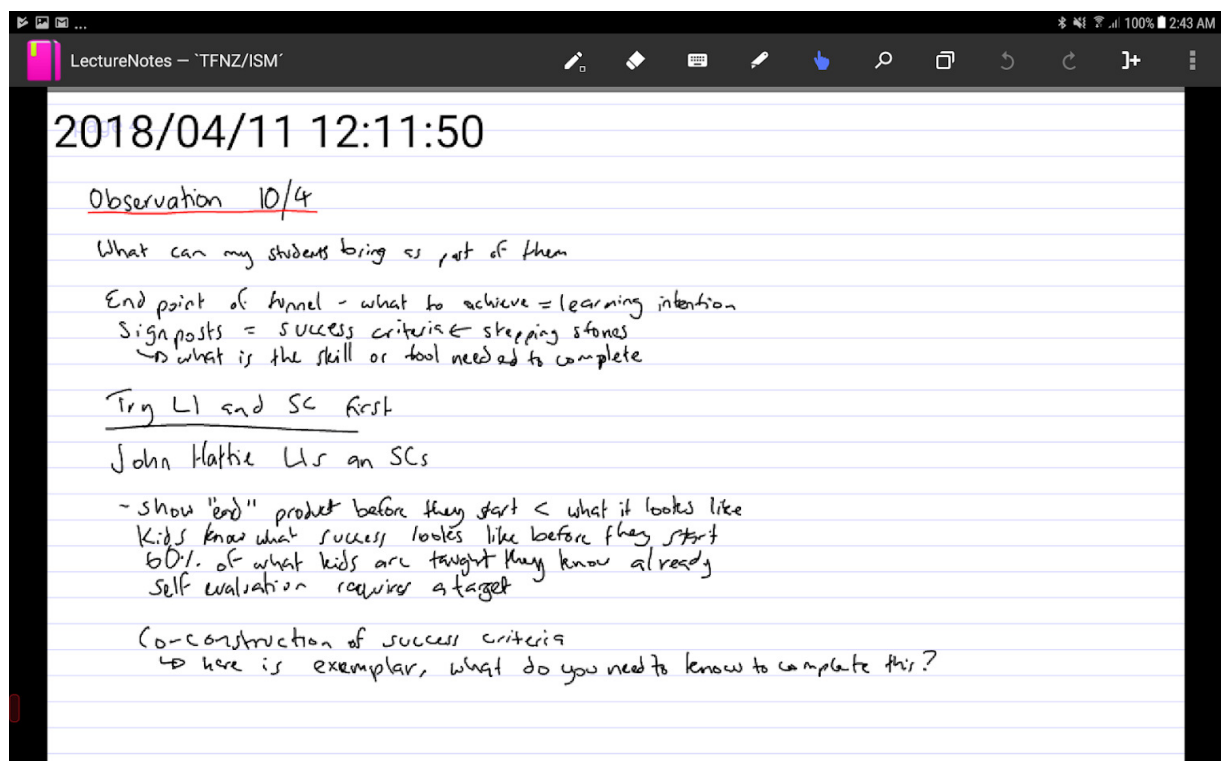 ... 100% 2:43 AM
LectureNotes – `TFNZ/ISM´
2018/04/11 12:11:50
Observation 10/4
What can my students bring as part of them
End point of funnel - what to achieve = learning intention
Signposts = success criteria ← stepping stones
↳ what is the skill or tool needed to complete
Try LI and SC first
John Hattie LIs an SCs
- show "end" product before they start < what it looks like
Kids know what success looks like before they start
60% of what kids are taught they know already
Self evaluation requires a target
Co-construction of success criteria
↳ here is exemplar, what do you need to know to complete this?